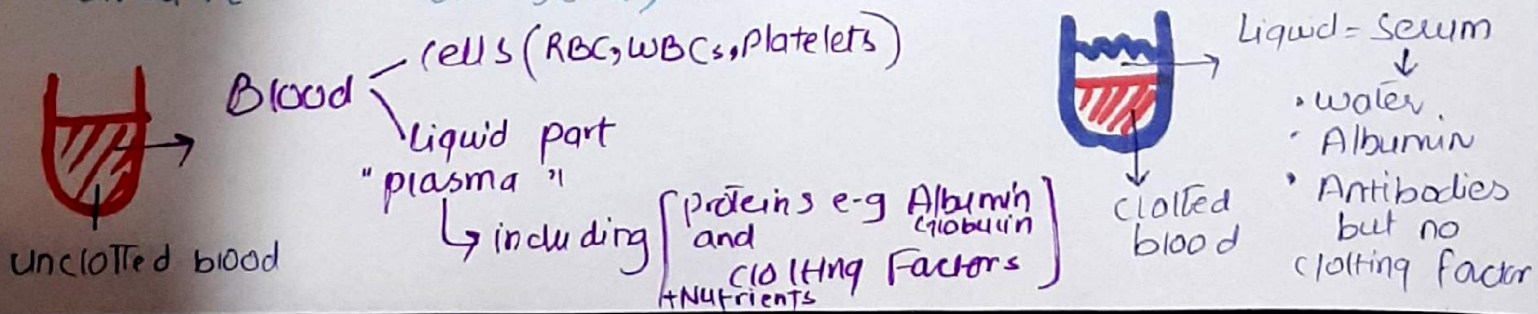 unclotted blood
Blood
cells (RBC, WBCs, Platelets)
liquid part
"plasma"
including
proteins e-g Albumin
Globulin
and
clotting Factors
+Nutrients
clotted
blood
Liquid = Serum
• water.
• Albumin
• Antibodies
but no
clotting factor